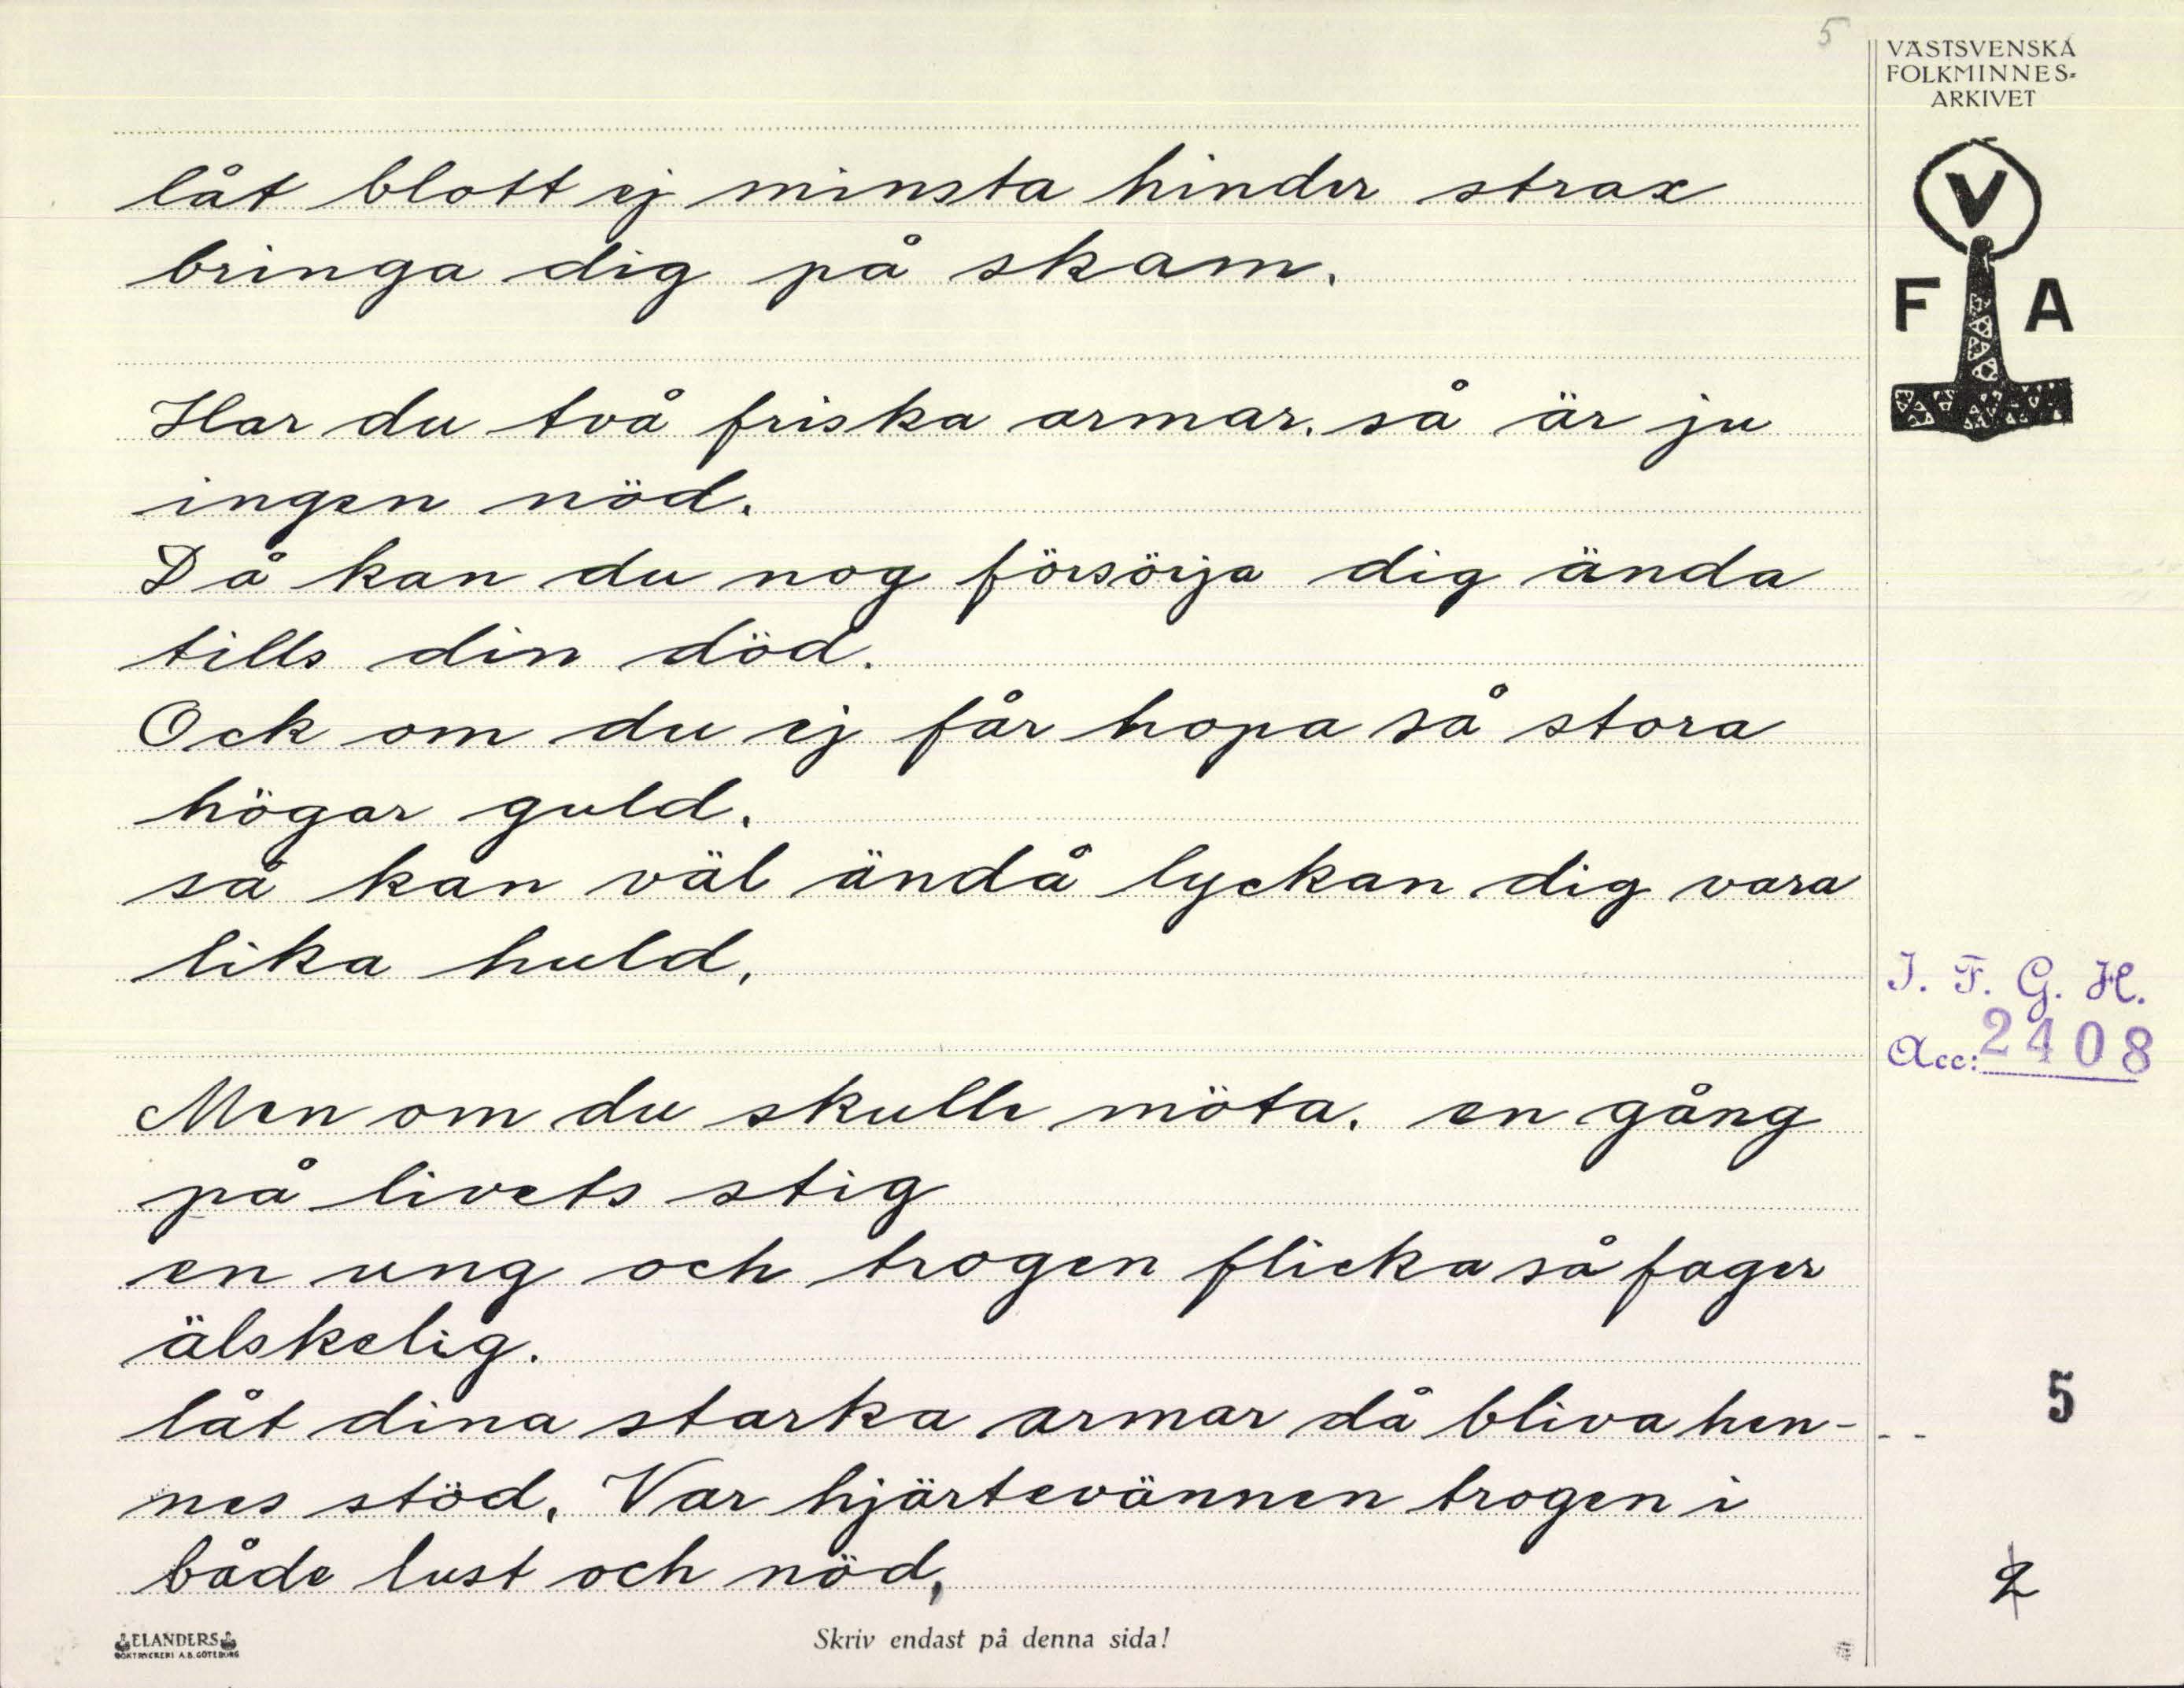 5
VÄSTSVENSKA
FOLKMINNES-
ARKIVET
V
F A
låt blott ej minsta hinder strax
bringa dig på skam.
Har du två friska armar. så är ju
ingen nöd.
Då kan du nog försörja dig ända
tills din död.
Ock om du ej får hopa så stora
högar guld.
så kan väl ändå lyckan dig vara
lika huld.
I. F. G. H.
Acc: 2408
Men om du skulle möta. en gång
på livets stig
en ung och trogen flicka så fager
älskelig.
låt dina starka armar då bliva hen-
5
nes stöd. Var hjärtevännen trogen i
både lust och nöd,
2
ELANDERS
BOKTRYCKERI A.B. GÖTEBORG
Skriv endast på denna sida!